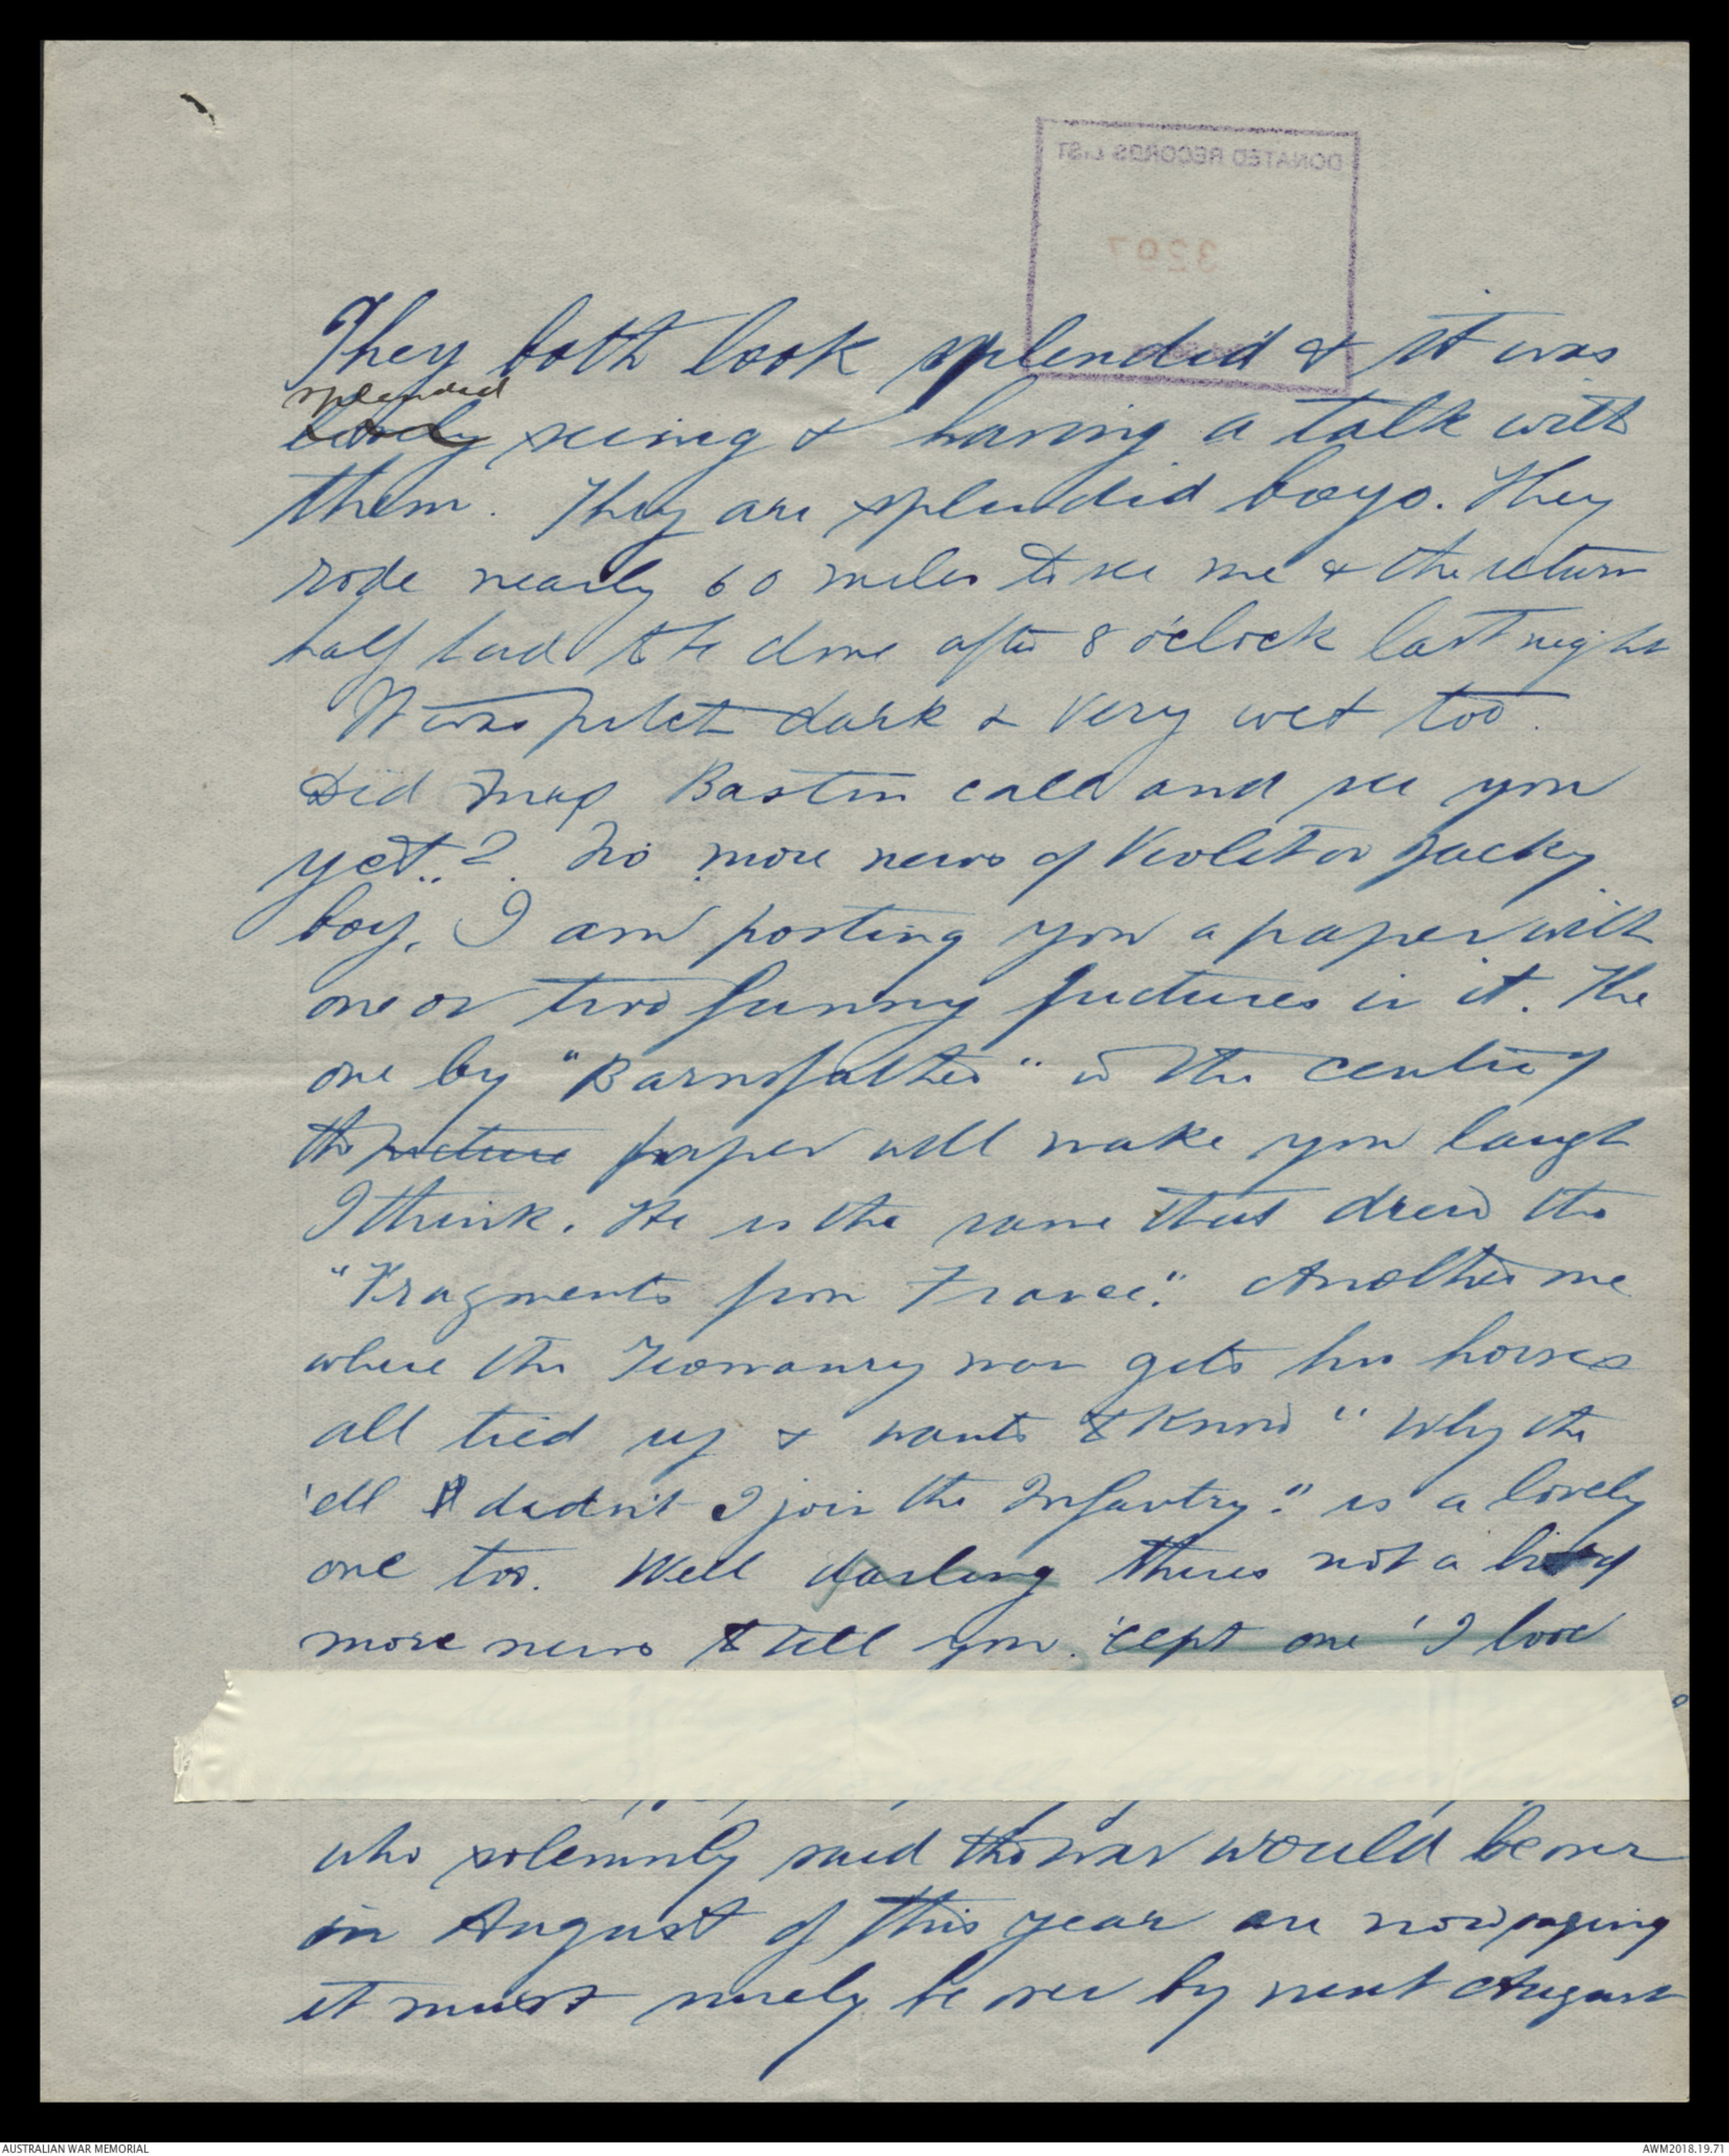 DONATED RECORDS LIST
3297
They both look splendid & it was
splendid
lovely seeing & having a talk with
them. They are splendid boys. They
rode nearly 60 miles to see me & the return
half had to be done after 8 o'clock last night
It was pitch dark & very wet too.
Did Bastin call and see you
yet..? No more news of Violet or Jacky
boy. I am posting you a paper with
one or two funny pictures in it. The
one by "Barnsfather" in the centre of
the picture paper will make you laugh
I think. He is the same that drew the
"Fragments from France". Another one
where the Yeomanry man gets his horses
all tied up & wants to know "Why the
'ell didn't I join the Infantry." is a lovely
one too. Well darling theres not a bit of
more news to tell you. 'cept one 'I love
who solemnly said the war would be over
in August of this year are now saying
it must surely be over by next August
AUSTRALIAN WAR MEMORIAL
AWM2018.19.71